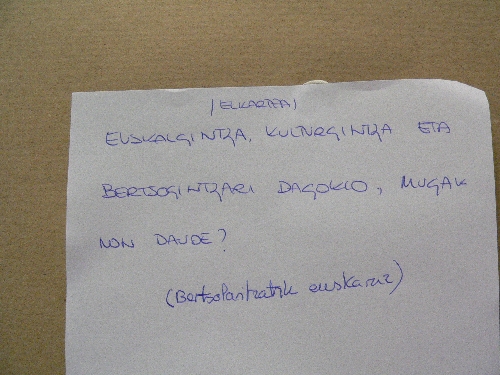 /ELKARTEA/
EUSKALGINTZA, KULTURGINTZA ETA
BERTSOGINTZARI DAGOKIO, MUGAK
NON DAUDE?
(Bertsolaritzatik euskaraz)